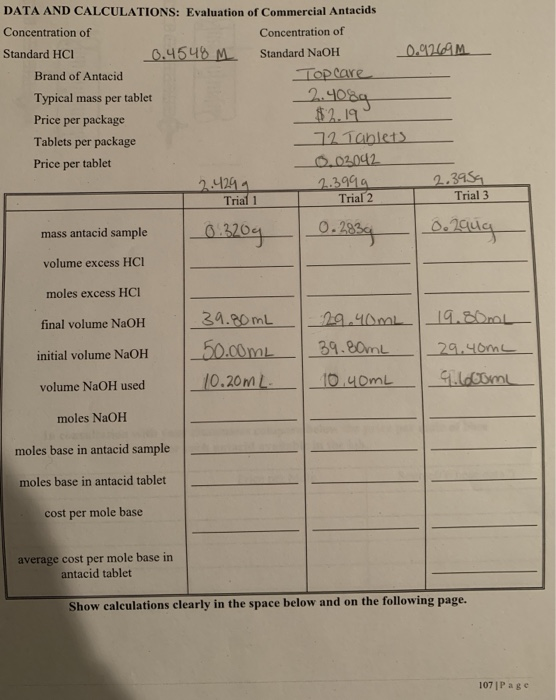 DATA AND CALCULATIONS: Evaluation of Commercial Antacids
Concentration of Concentration of
Standard HCl 0.4548 M Standard NaOH 0.9269 M
Brand of Antacid Topcare
Typical mass per tablet 2.408g
Price per package $2.19
Tablets per package 72 Tablets
Price per tablet 0.03042
2.429g 2.399g 2.395g
Trial 1 Trial 2 Trial 3
mass antacid sample 0.320g 0.283g 0.294g
volume excess HCl
moles excess HCl
final volume NaOH 39.80mL 29.40mL 19.80mL
initial volume NaOH 50.00mL 39.80mL 29.40mL
volume NaOH used 10.20mL. 10.40mL 9.600mL
moles NaOH
moles base in antacid sample
moles base in antacid tablet
cost per mole base
average cost per mole base in
antacid tablet
Show calculations clearly in the space below and on the following page.
107 | Page